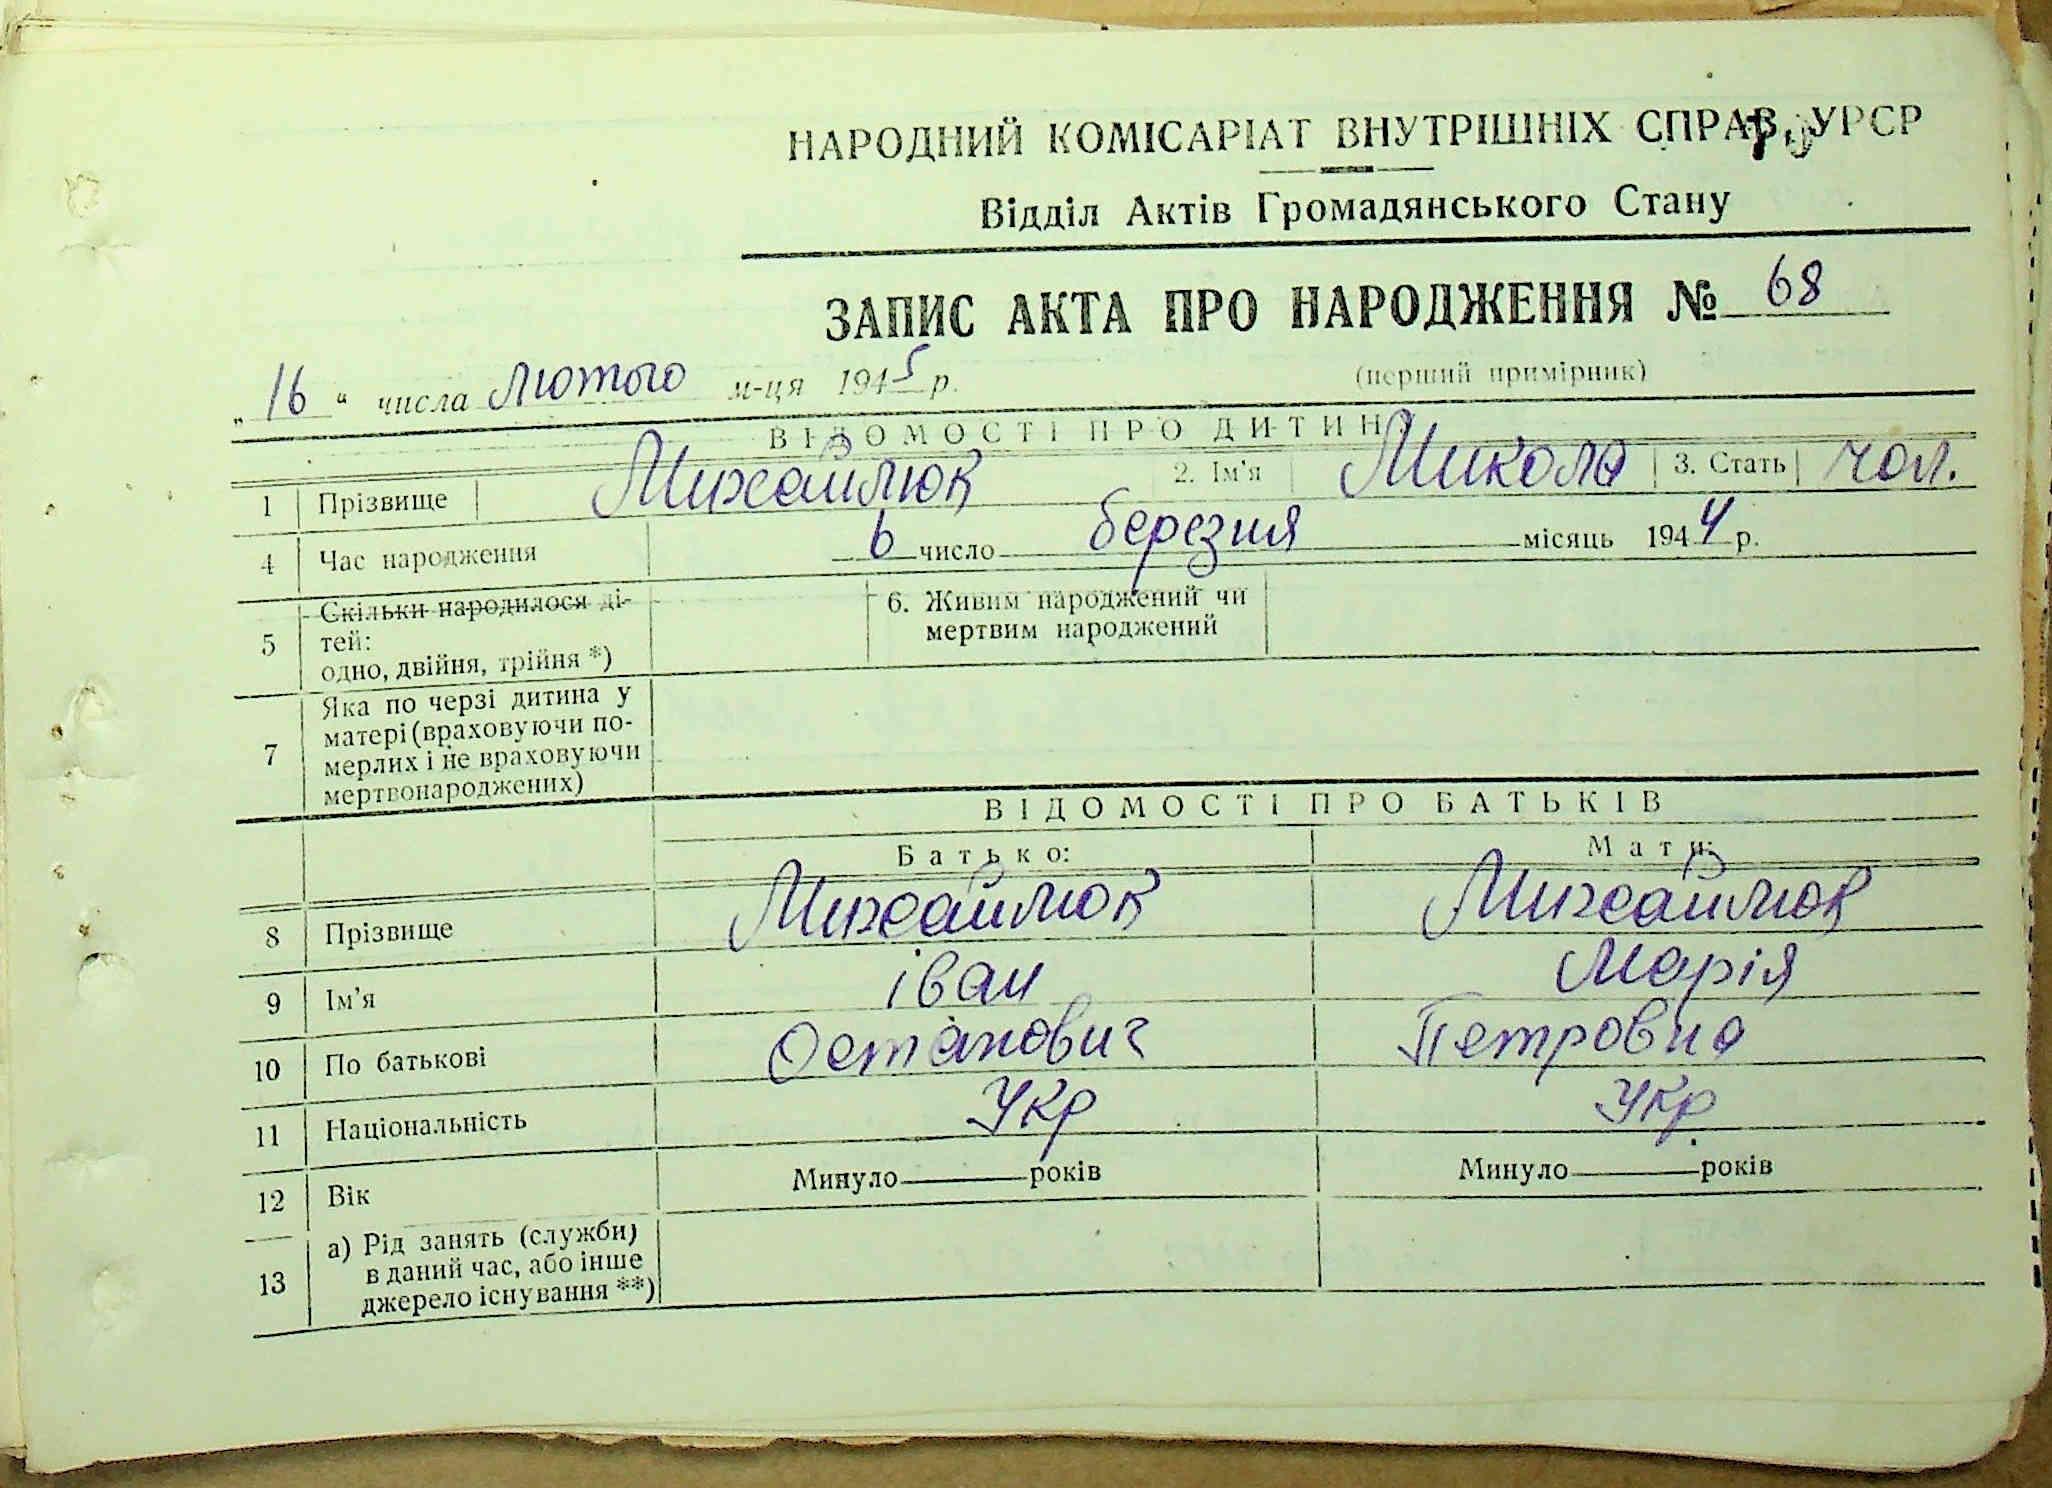 НАРОДНИЙ КОМІСАРІАТ ВНУТРІШНІХ СПРАВ УРСР
Відділ Актів Громадянського Стану
ЗАПИС АКТА ПРО НАРОДЖЕННЯ № 68
(перший примірник)
„16“ числа лютого м-ця 1945 р.
ВІДОМОСТІ ПРО ДИТИНУ
1 Прізвище Михайлюк 2. Ім'я Микола 3. Стать чол.
4 Час народження 6 число березня місяць 1944 р.
5 Скільки народилося ді-
тей:
одно, двійня, трійня *)
6. Живим народжений чи
мертвим народжений
7 Яка по черзі дитина у
матері (враховуючи по-
мерлих і не враховуючи
мертвонароджених)
ВІДОМОСТІ ПРО БАТЬКІВ
Батько: Мати:
8 Прізвище Михайлюк Михайлюк
9 Ім'я іван Марія
10 По батькові Остапович Петровна
11 Національність Укр Укр
12 Вік Минуло років Минуло років
13 а) Рід занять (служби)
в даний час, або інше
джерело існування **)